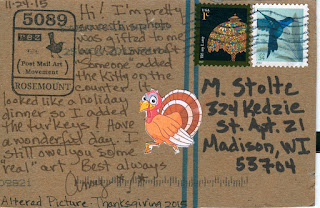 11-24-15
5089
Post Mail Art
Movement
ROSEMOUNT
Hi! I'm pretty
this photo
was gifted to me
Someone added
the Kitty on the
counter. It
looked like a holiday
dinner so I added
the turkeys! Have
a wonderful day. I
still owe you some
"real" art Best always
Altered Picture - Thanksgiving 2015
M. Stolte
324 Kedzie
St. Apt. 21
Madison, WI
53704